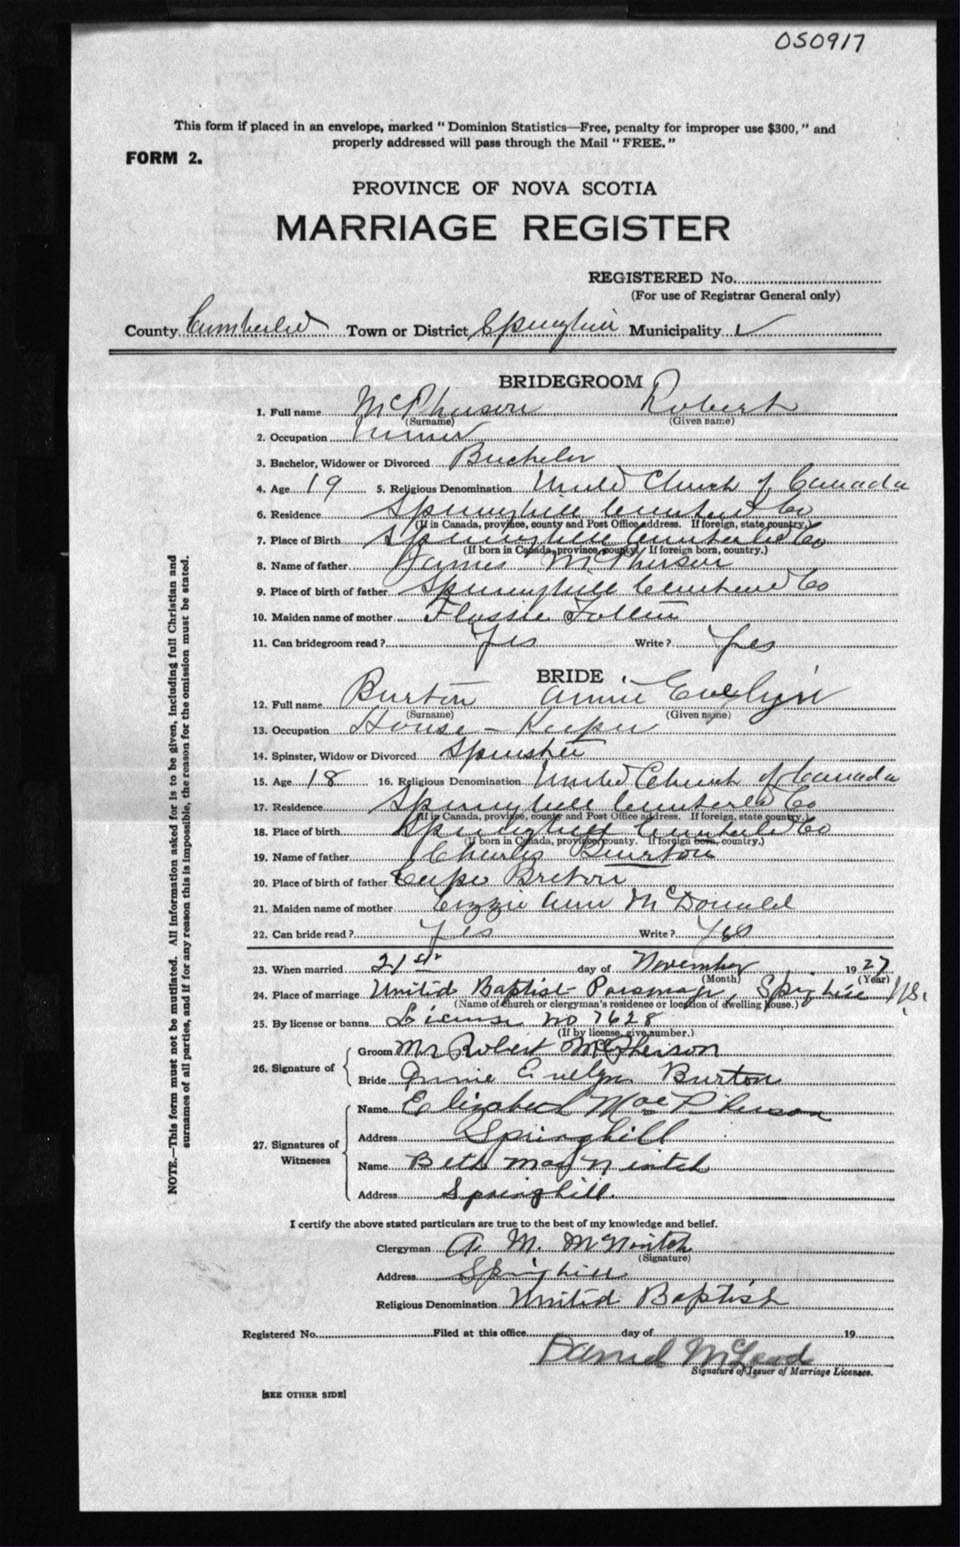 050917
This form if placed in an envelope, marked "Dominion Statistics—Free, penalty for improper use $300," and
properly addressed will pass through the Mail "FREE."
FORM 2.
PROVINCE OF NOVA SCOTIA
MARRIAGE REGISTER
REGISTERED No.
(For use of Registrar General only)
County Cumberld Town or District Springhill Municipality ✓
BRIDEGROOM
1. Full name McPherson Robert
(Surname) (Given name)
2. Occupation Miner
3. Bachelor, Widower or Divorced Bachelor
4. Age 19 5. Religious Denomination United Church of Canada
6. Residence Springhill Cumberld Co
(If in Canada, province, county and Post Office address. If foreign, state country.)
7. Place of Birth Springhill Cumberld Co
(If born in Canada, province, county. If foreign born, country.)
8. Name of father James McPherson
9. Place of birth of father Springhill Cumberld Co
10. Maiden name of mother Flossie
11. Can bridegroom read? Yes Write? Yes
BRIDE
12. Full name Burton Annie Evelyn
(Surname) (Given name)
13. Occupation House-Keeper
14. Spinster, Widow or Divorced Spinster
15. Age 18 16. Religious Denomination United Church of Canada
17. Residence Springhill Cumberld Co
(If in Canada, province, county and Post Office address. If foreign, state country.)
18. Place of birth Springhill Cumberld Co
(If born in Canada, province, county. If foreign born, country.)
19. Name of father Charles Burton
20. Place of birth of father Cape Breton
21. Maiden name of mother Lizzie Ann McDonald
22. Can bride read? Yes Write? Yes
23. When married 21st day of November 1927
(Month) (Year)
24. Place of marriage United Baptist Parsonage, Springhill N.S.
(Name of church or clergyman's residence or location of dwelling house.)
25. By license or banns License No 7628
(If by license, give number.)
26. Signature of
Groom Mr Robert McPherson
Bride Annie Evelyn Burton
27. Signatures of Witnesses
Name Elizabeth MacPherson
Address Springhill
Name Beth MacNintch
Address Springhill.
I certify the above stated particulars are true to the best of my knowledge and belief.
Clergyman A. M. McNintch
(Signature)
Address Springhill
Religious Denomination United Baptist
Registered No. Filed at this office day of 19
Daniel McLeod
Signature of Issuer of Marriage Licenses.
[SEE OTHER SIDE]
NOTE.—This form must not be mutilated. All information asked for is to be given, including full Christian and
surnames of all parties, and if for any reason this is impossible, the reason for the omission must be stated.